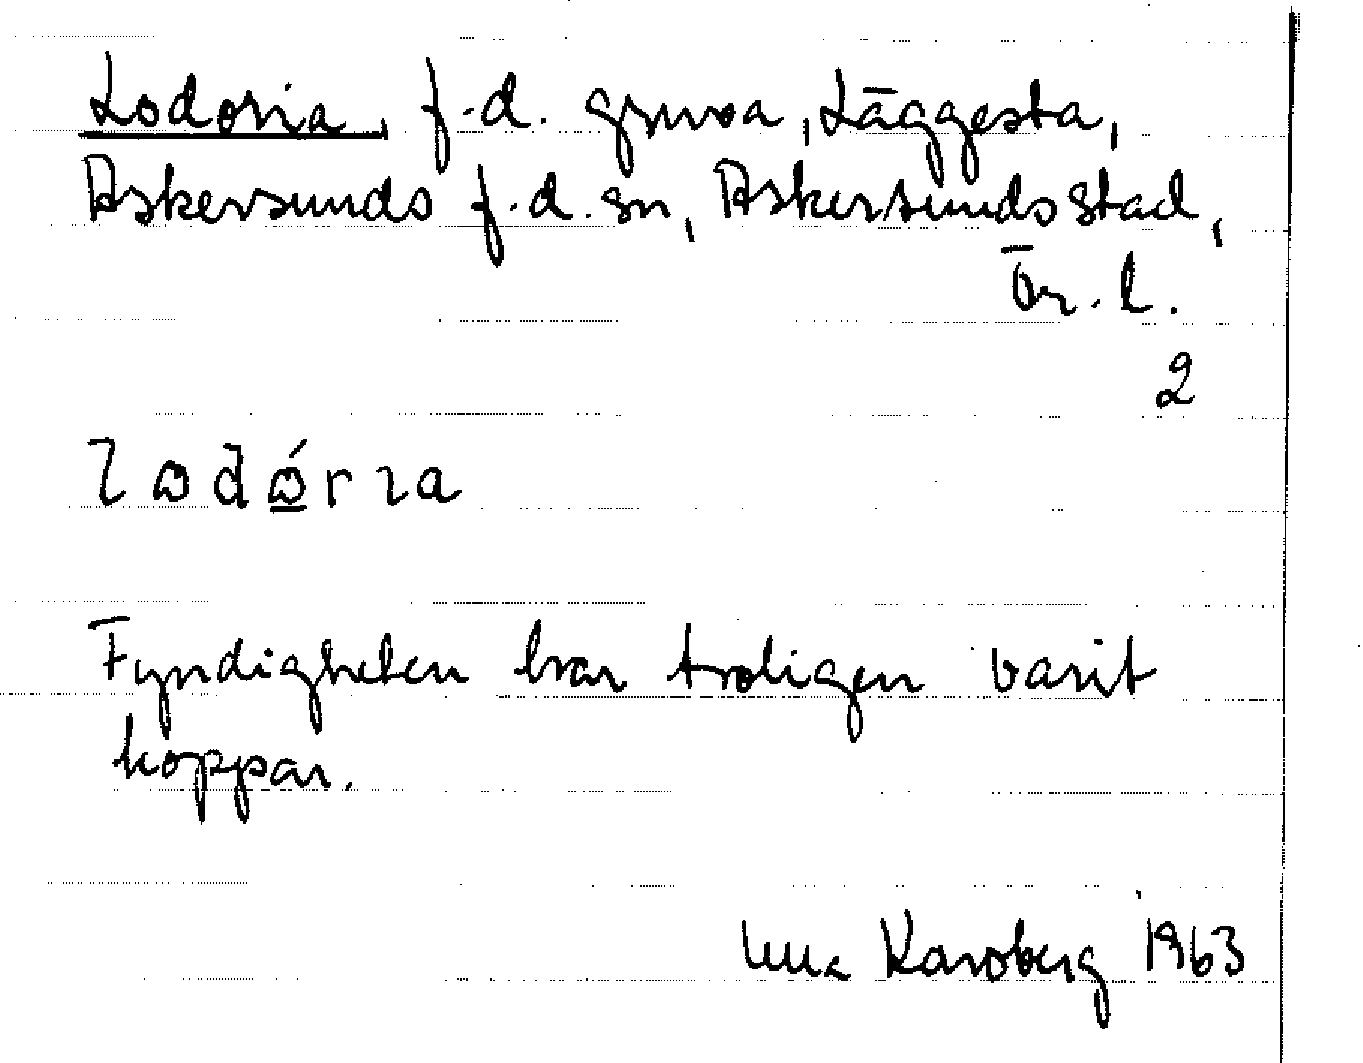 Lodoria, f.d. gruva, Läggesta,
Askersunds f.d. sn, Askersunds stad,
Ör. l.
2
lodória
Fyndigheten har troligen varit
koppar.
Karsberg 1963